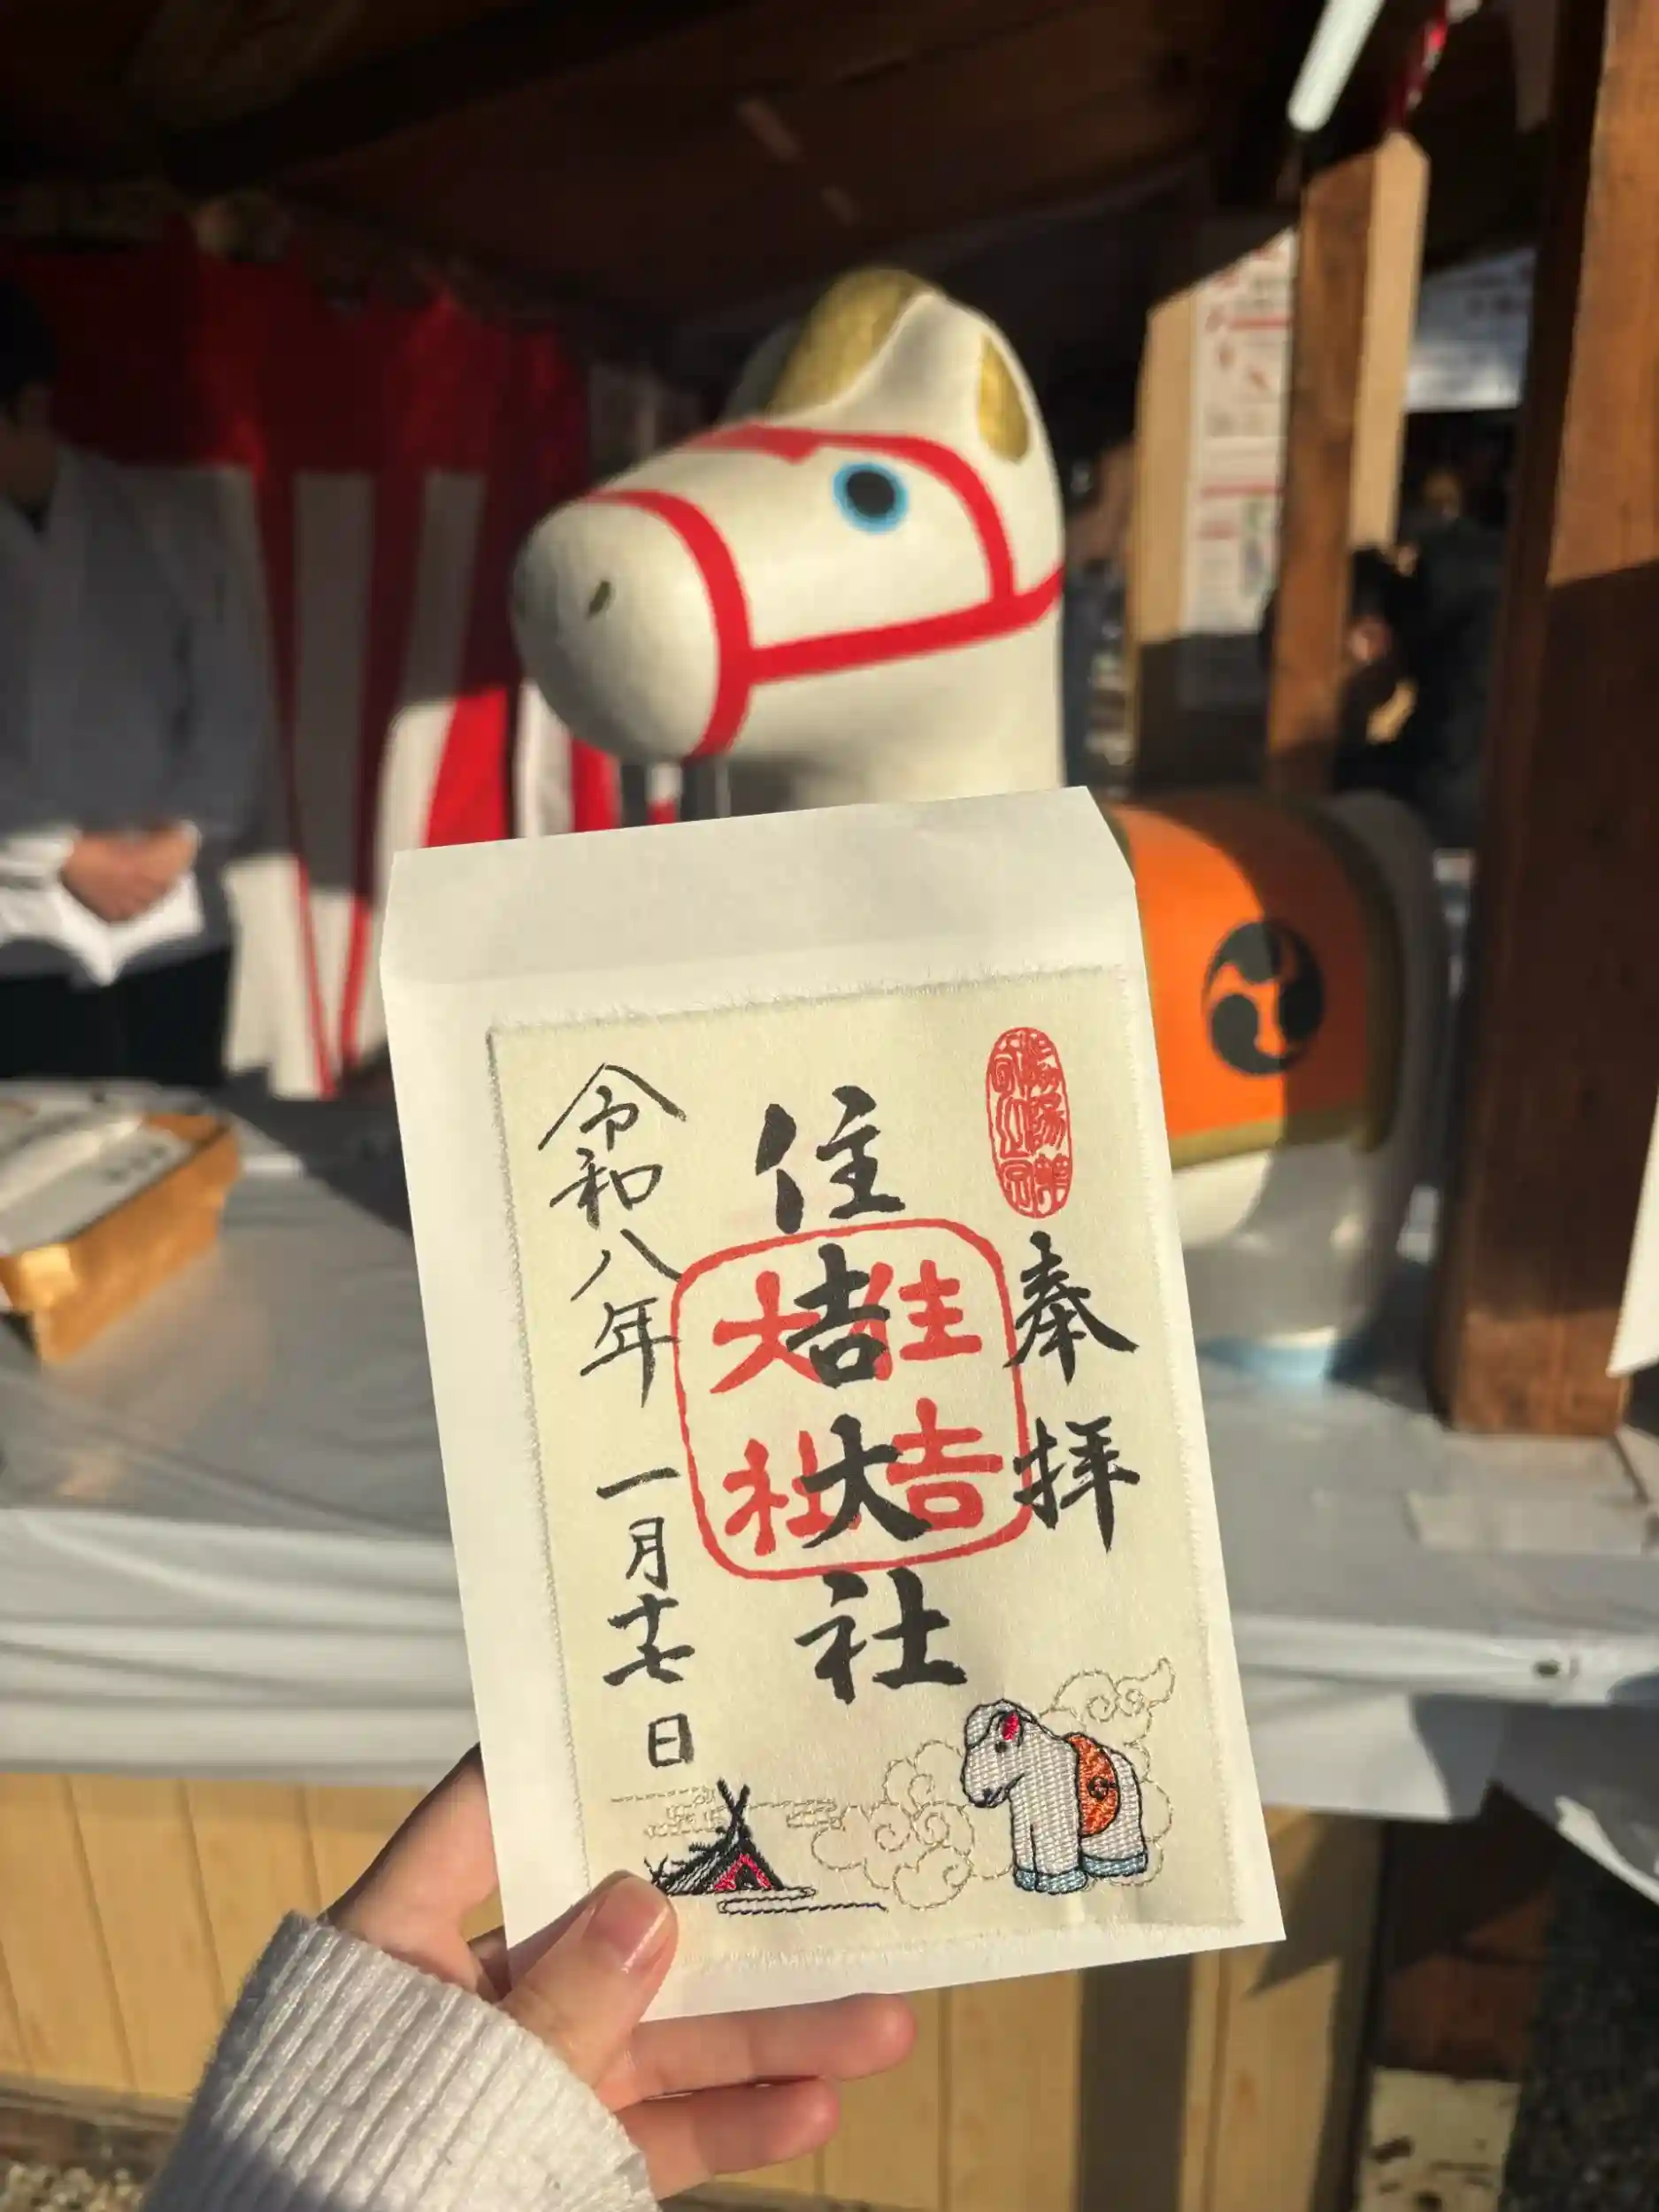 奉拝
住吉大社
住吉
大社
令和八年
一月十七日